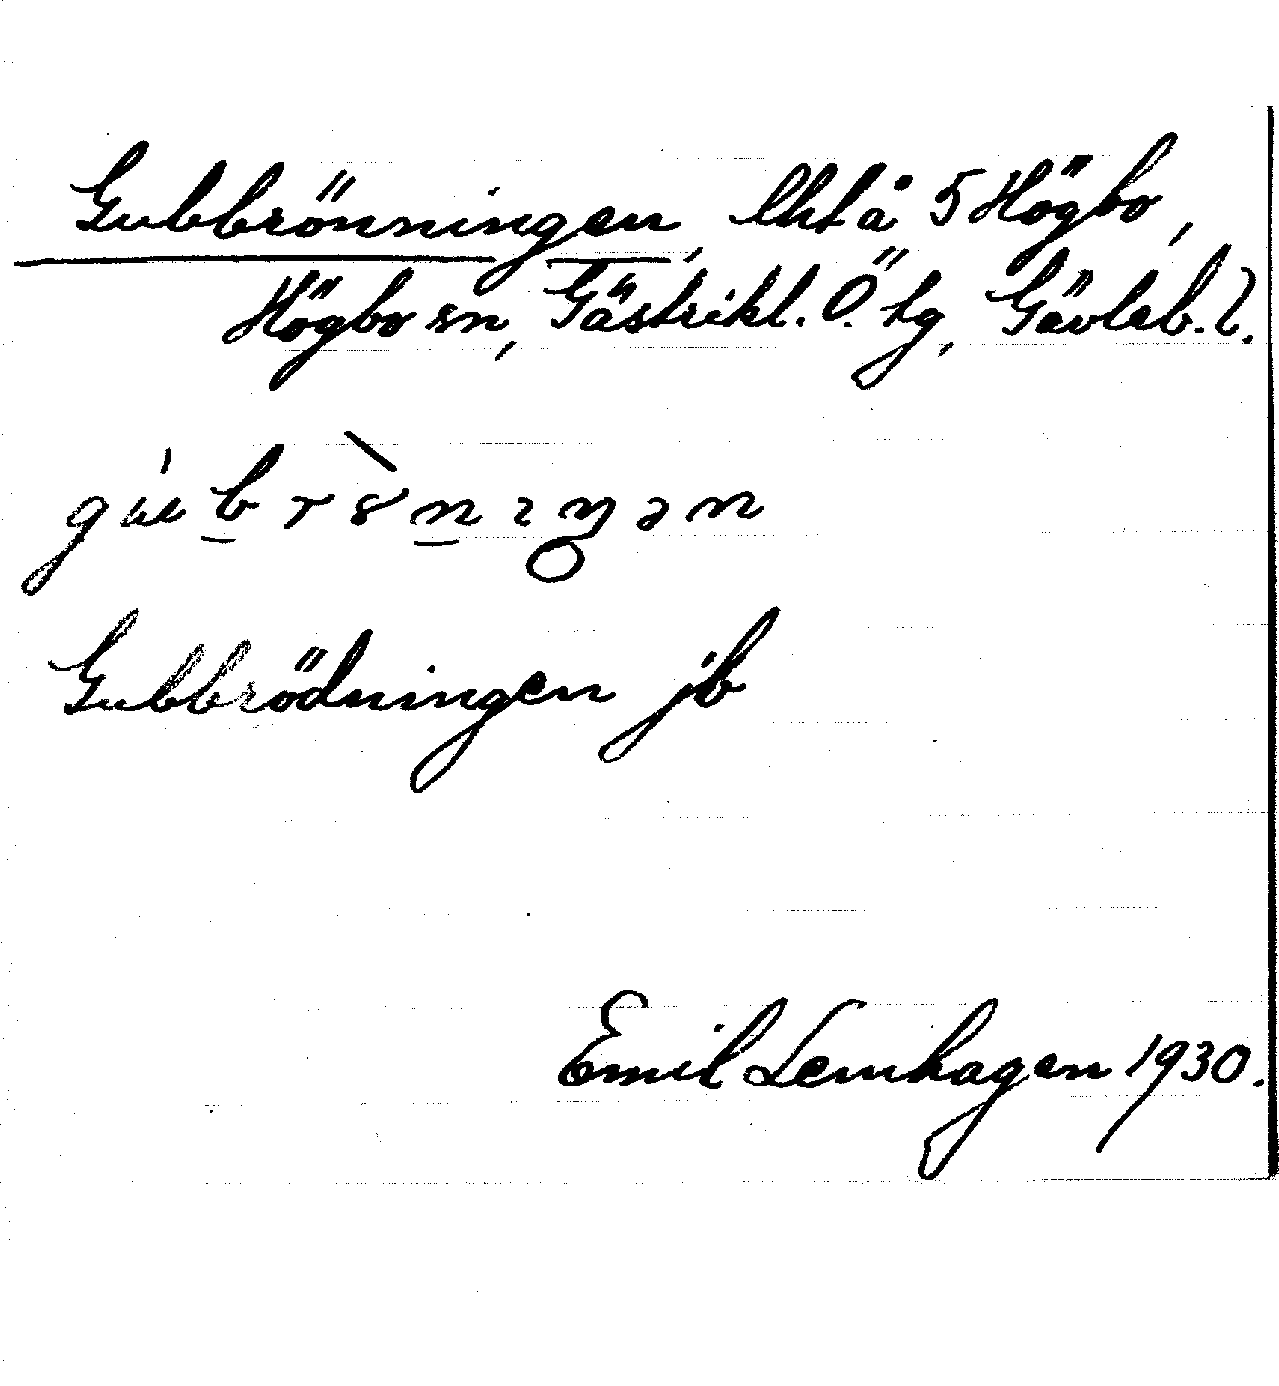 Gubbrönningen, lht å 5 Högbo,
Högbo sn, Gästrikl. Ö. tg, Gävleb. l.
Gubbrödningen jb
Emil Lenhagen 1930.